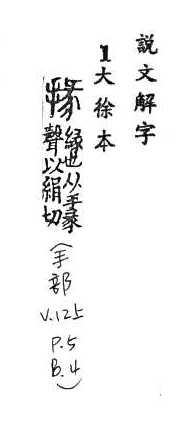 説文解字
1大徐本
掾 緣也从手彖
聲以絹切
(手部 V.12上 P.5 B.4)